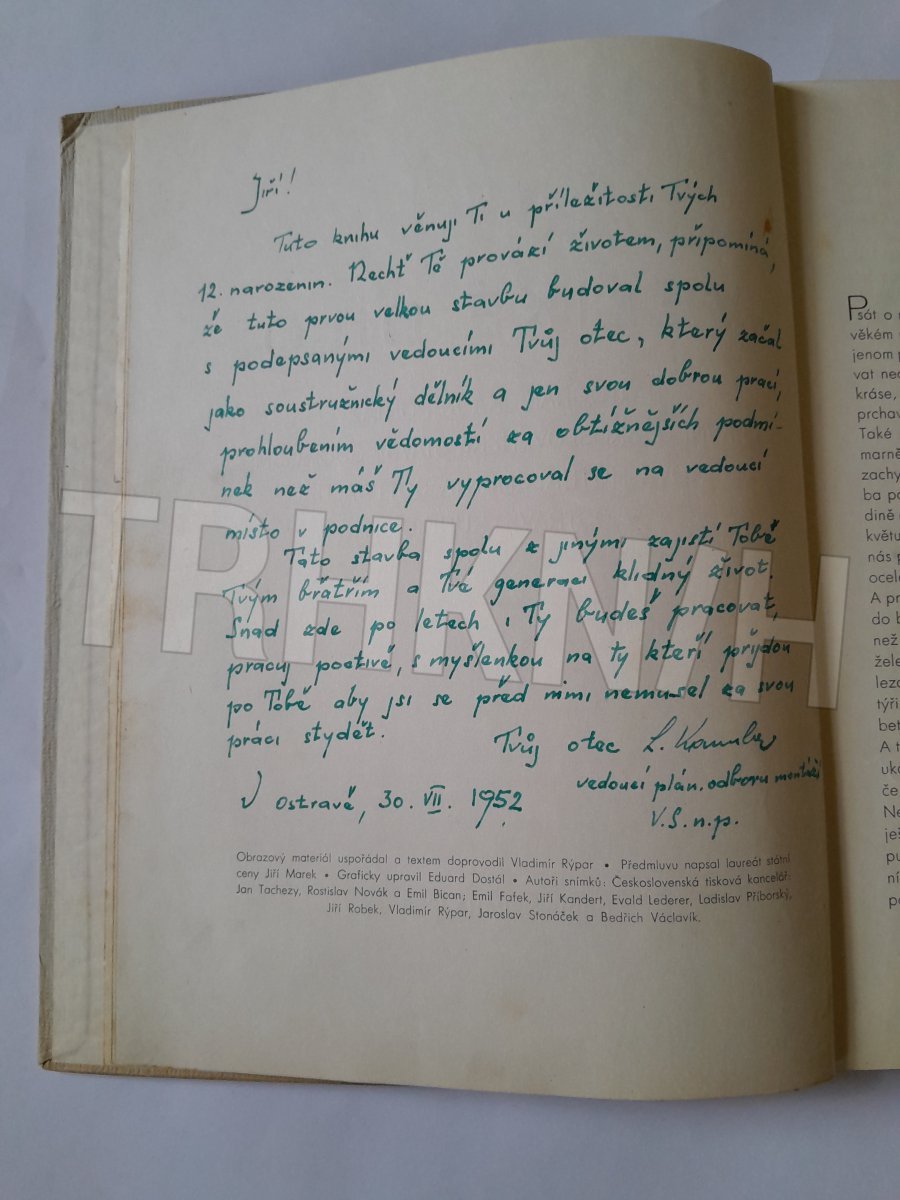 Jiří!
Tuto knihu věnuji Ti u příležitosti Tvých
12. narozenin. Nechť Tě provází životem, připomíná,
že tuto prvou velkou stavbu budoval spolu
s podepsanými vedoucími Tvůj otec, který začal
jako soustružnický dělník a jen svou dobrou prací,
prohloubením vědomostí za obtížnějších podmí-
nek než máš Ty vypracoval se na vedoucí
místo v podnice.
Tato stavba spolu z jinými zajistí Tobě
Tvým bratřím a Tvé generaci klidný život.
Snad zde po letech i Ty budeš pracovat,
pracuj poctivě, s myšlenkou na ty kteří přijdou
po Tobě aby jsi se před nimi nemusel za svou
práci stydět.
Tvůj otec L.
vedoucí plán. odboru montáží
V Ostravě, 30. VII. 1952
V.S. n.p.
Obrazový materiál uspořádal a textem doprovodil Vladimír Rýpar • Předmluvu napsal laureát státní
ceny Jiří Marek • Graficky upravil Eduard Dostál • Autoři snímků: Československá tisková kancelář:
Jan Tachezy, Rostislav Novák a Emil Bican; Emil Fafek, Jiří Kandert, Evald Lederer, Ladislav Příborský,
Jiří Robek, Vladimír Rýpar, Jaroslav Stonáček a Bedřich Václavík.
Psát o
věkém
jenom
vat
kráse,
Také
květu
nás
A
do
než
A
TRHKNIH